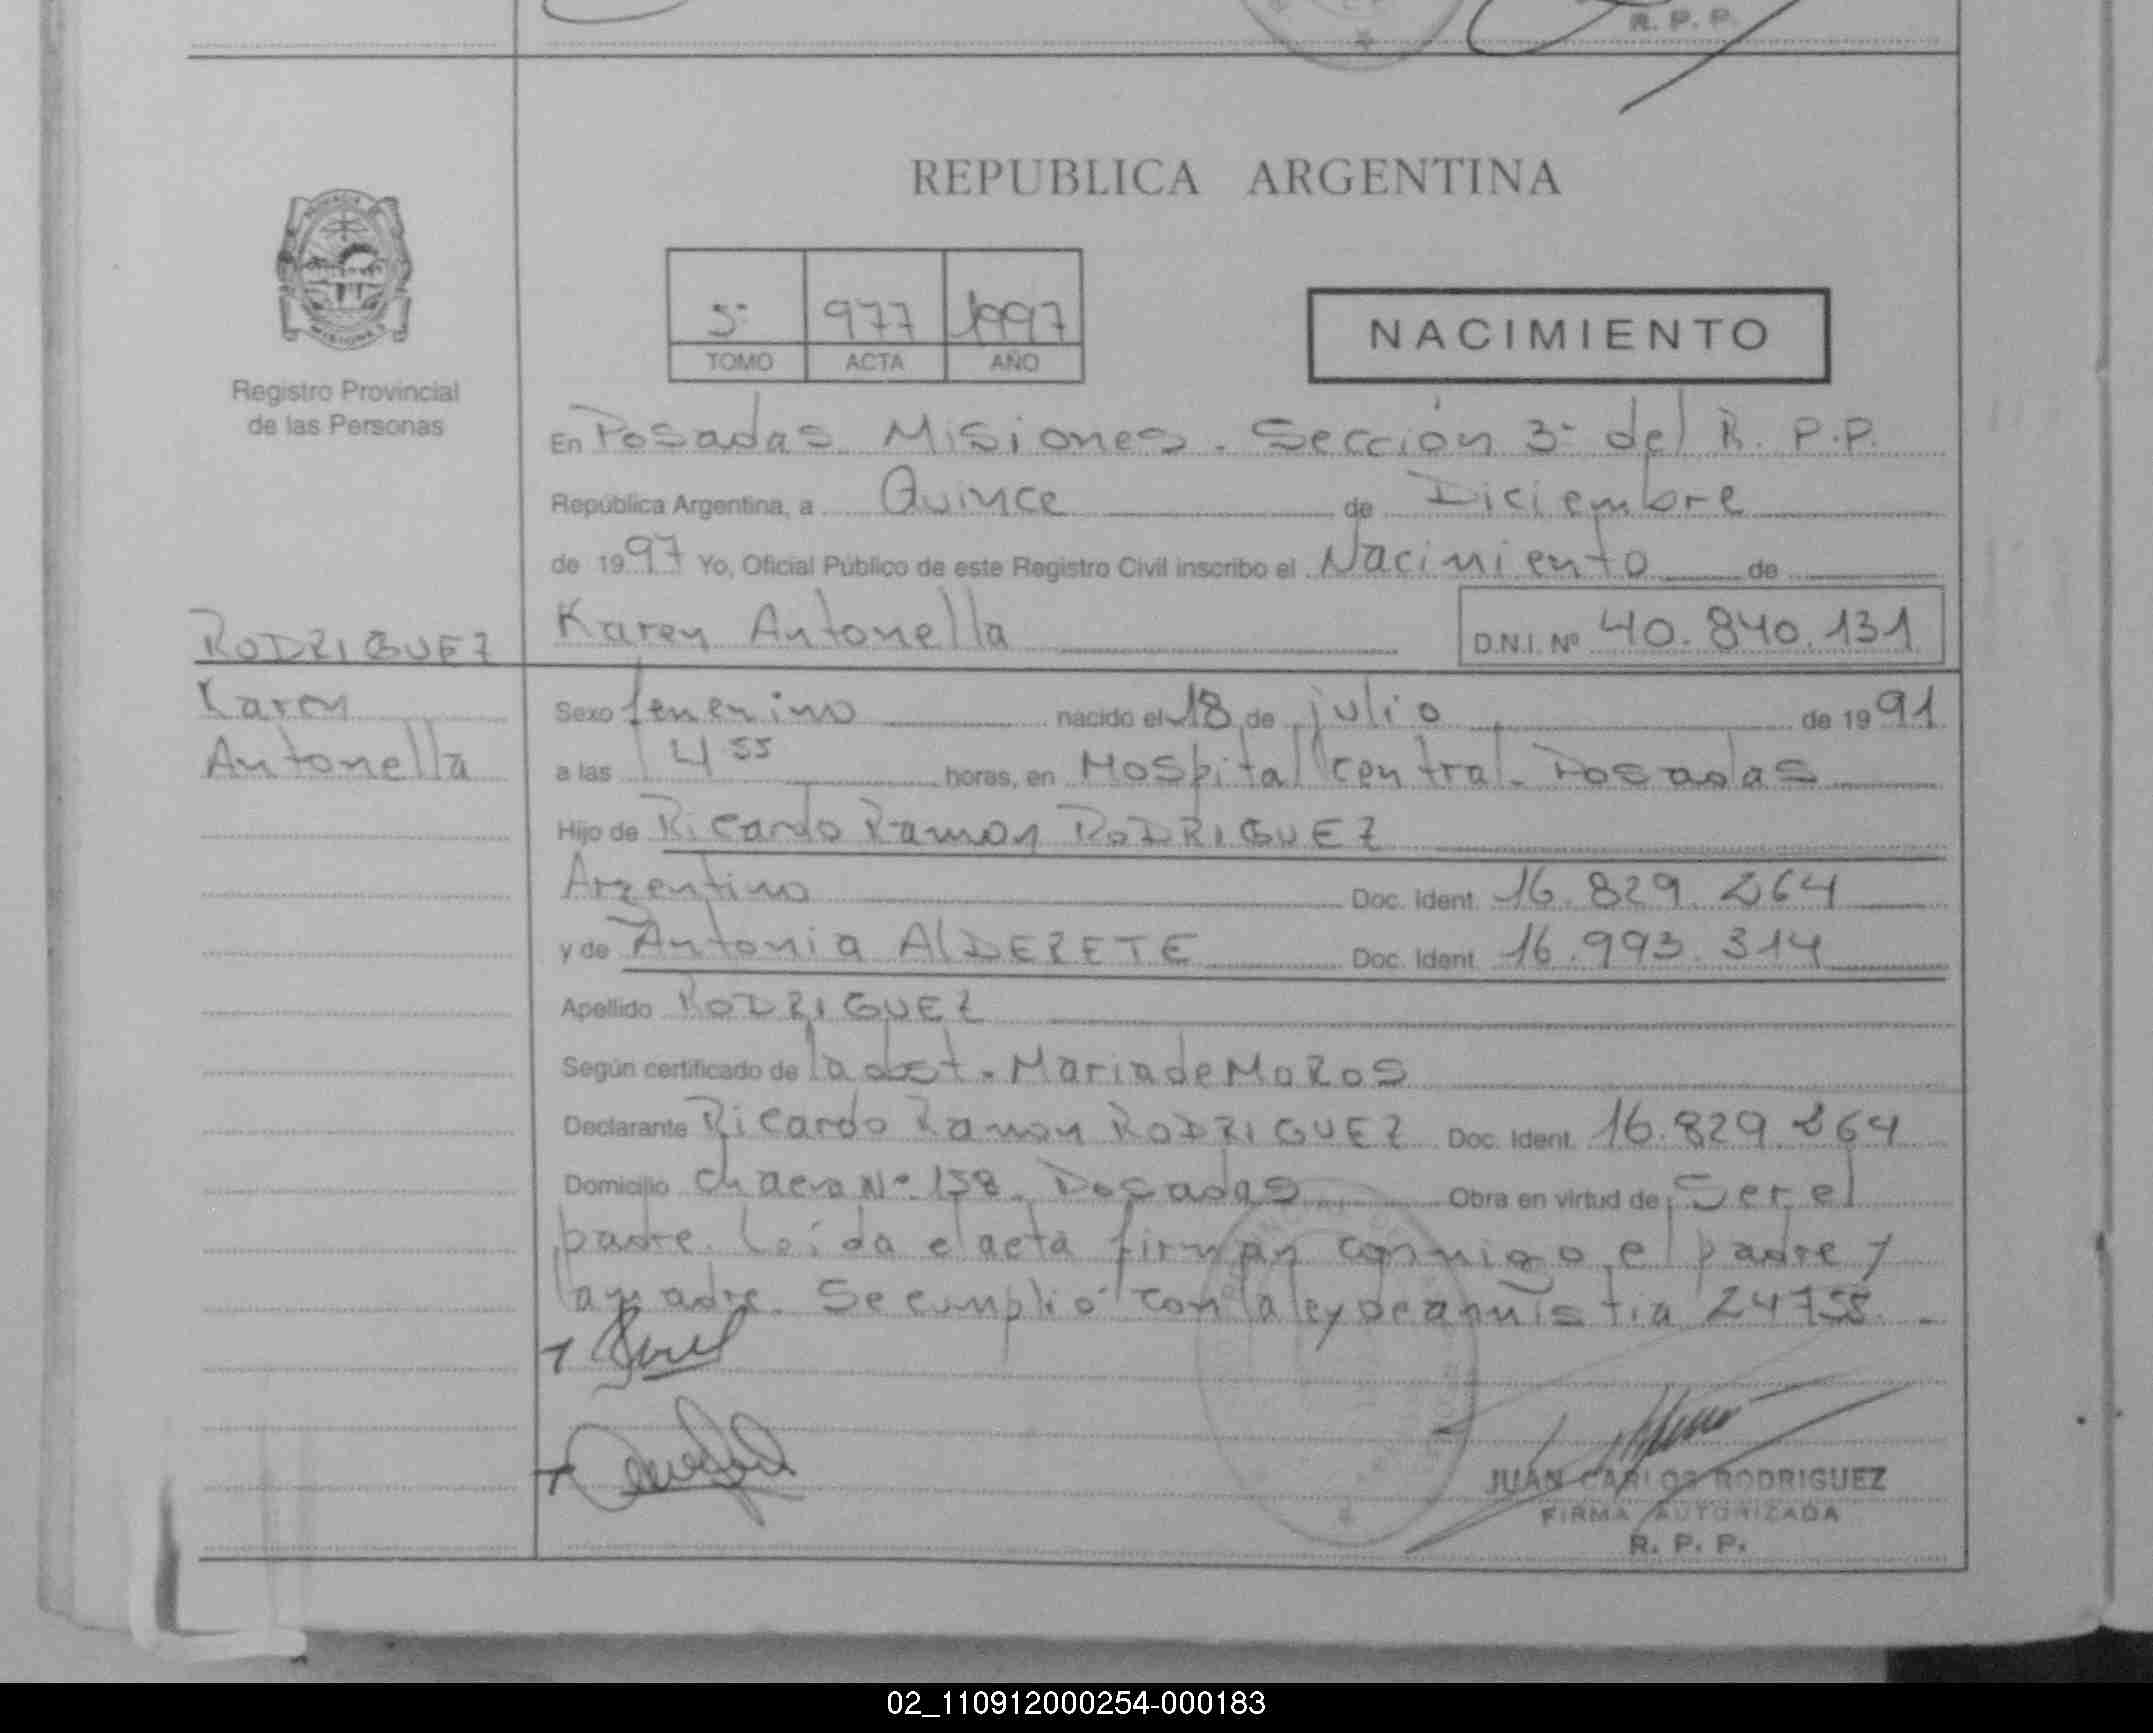 R. P. P.
REPUBLICA ARGENTINA
5º 977 1997
TOMO ACTA AÑO
NACIMIENTO
Registro Provincial
de las Personas
En Posadas Misiones. Sección 3º del R. P.P.
República Argentina, a Quince de Diciembre
de 1997 Yo, Oficial Público de este Registro Civil inscribo el Nacimiento de
Karen Antonella D.N.I. Nº 40.840.131
RODRIGUEZ
Karen
Antonella
Sexo femenino nacido el 18 de julio de 1991
a las 4 55 horas, en Hospital central. Posadas
Hijo de Ricardo Ramon RODRIGUEZ
Argentino Doc. Ident. 16.829.264
y de Antonia AlDERETE Doc. Ident. 16.993.314
Apellido RODRIGUEZ
Según certificado de la obst. Maria de MoRos
Declarante Ricardo Ramon RODRIGUEZ Doc. Ident. 16.829.264
Domicilio chacra Nº 158. Posadas Obra en virtud de Ser el
padre. Leída el acta firman conmigo el padre y
la madre. Se cumplió con la ley de amnistia 24755.
JUAN CARLOS RODRIGUEZ
FIRMA AUTORIZADA
R. P. P.
02_110912000254-000183